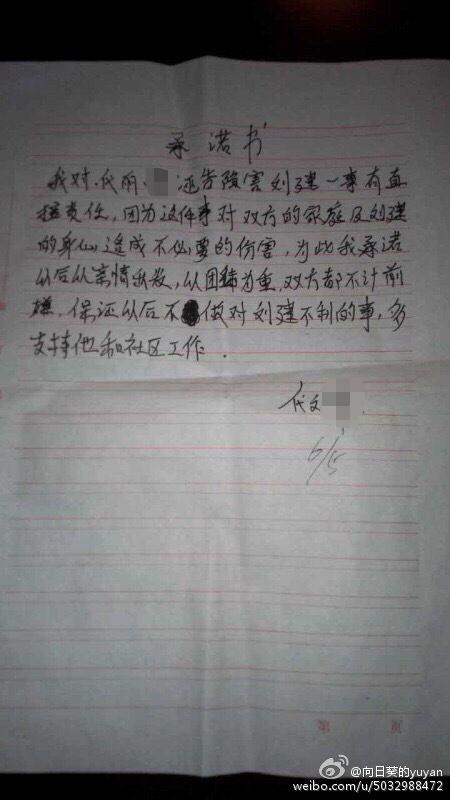 承诺书
我对代丽 诬告陷害刘建一事有直
接责任,因为这件事对双方的家庭及刘建
的身心造成不必要的伤害,为此我承诺
以后从亲情出发,从团结为重,双方都不计前
嫌,保证以后不做对刘建不利的事,多
支持他和社区工作.
代文
6/5
第 页
@向日葵的yuyan
weibo.com/u/5032988472